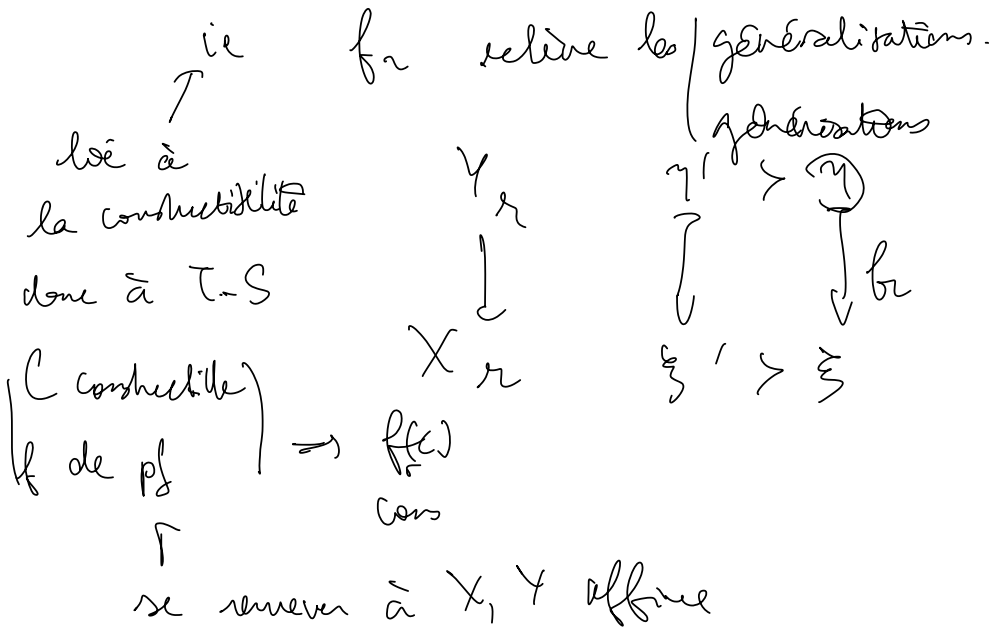 ie f_r relève les | généralisations.
générisations
lié à
la constructibilité
donc à T-S
Y_r η' > η
↓ ↓ ↓ f_r
X_r ξ' > ξ
C constructible
f de pf ⇒ f_r(C)
cons
↑
se ramener à X, Y affine